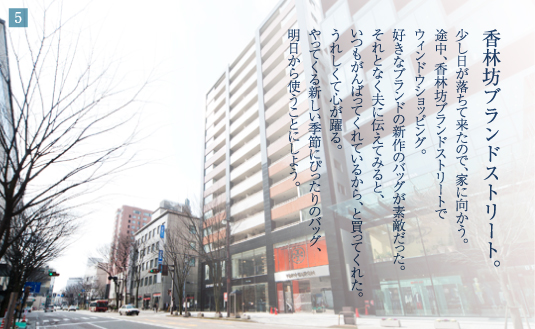 5
香林坊ブランドストリート。
少し日が落ちて来たので、家に向かう。
途中、香林坊ブランドストリートで
ウィンドウショッピング。
好きなブランドの新作のバッグが素敵だった。
それとなく夫に伝えてみると、
いつもがんばってくれているから、と買ってくれた。
うれしくて心が躍る。
やってくる新しい季節にぴったりのバッグ、
明日から使うことにしよう。